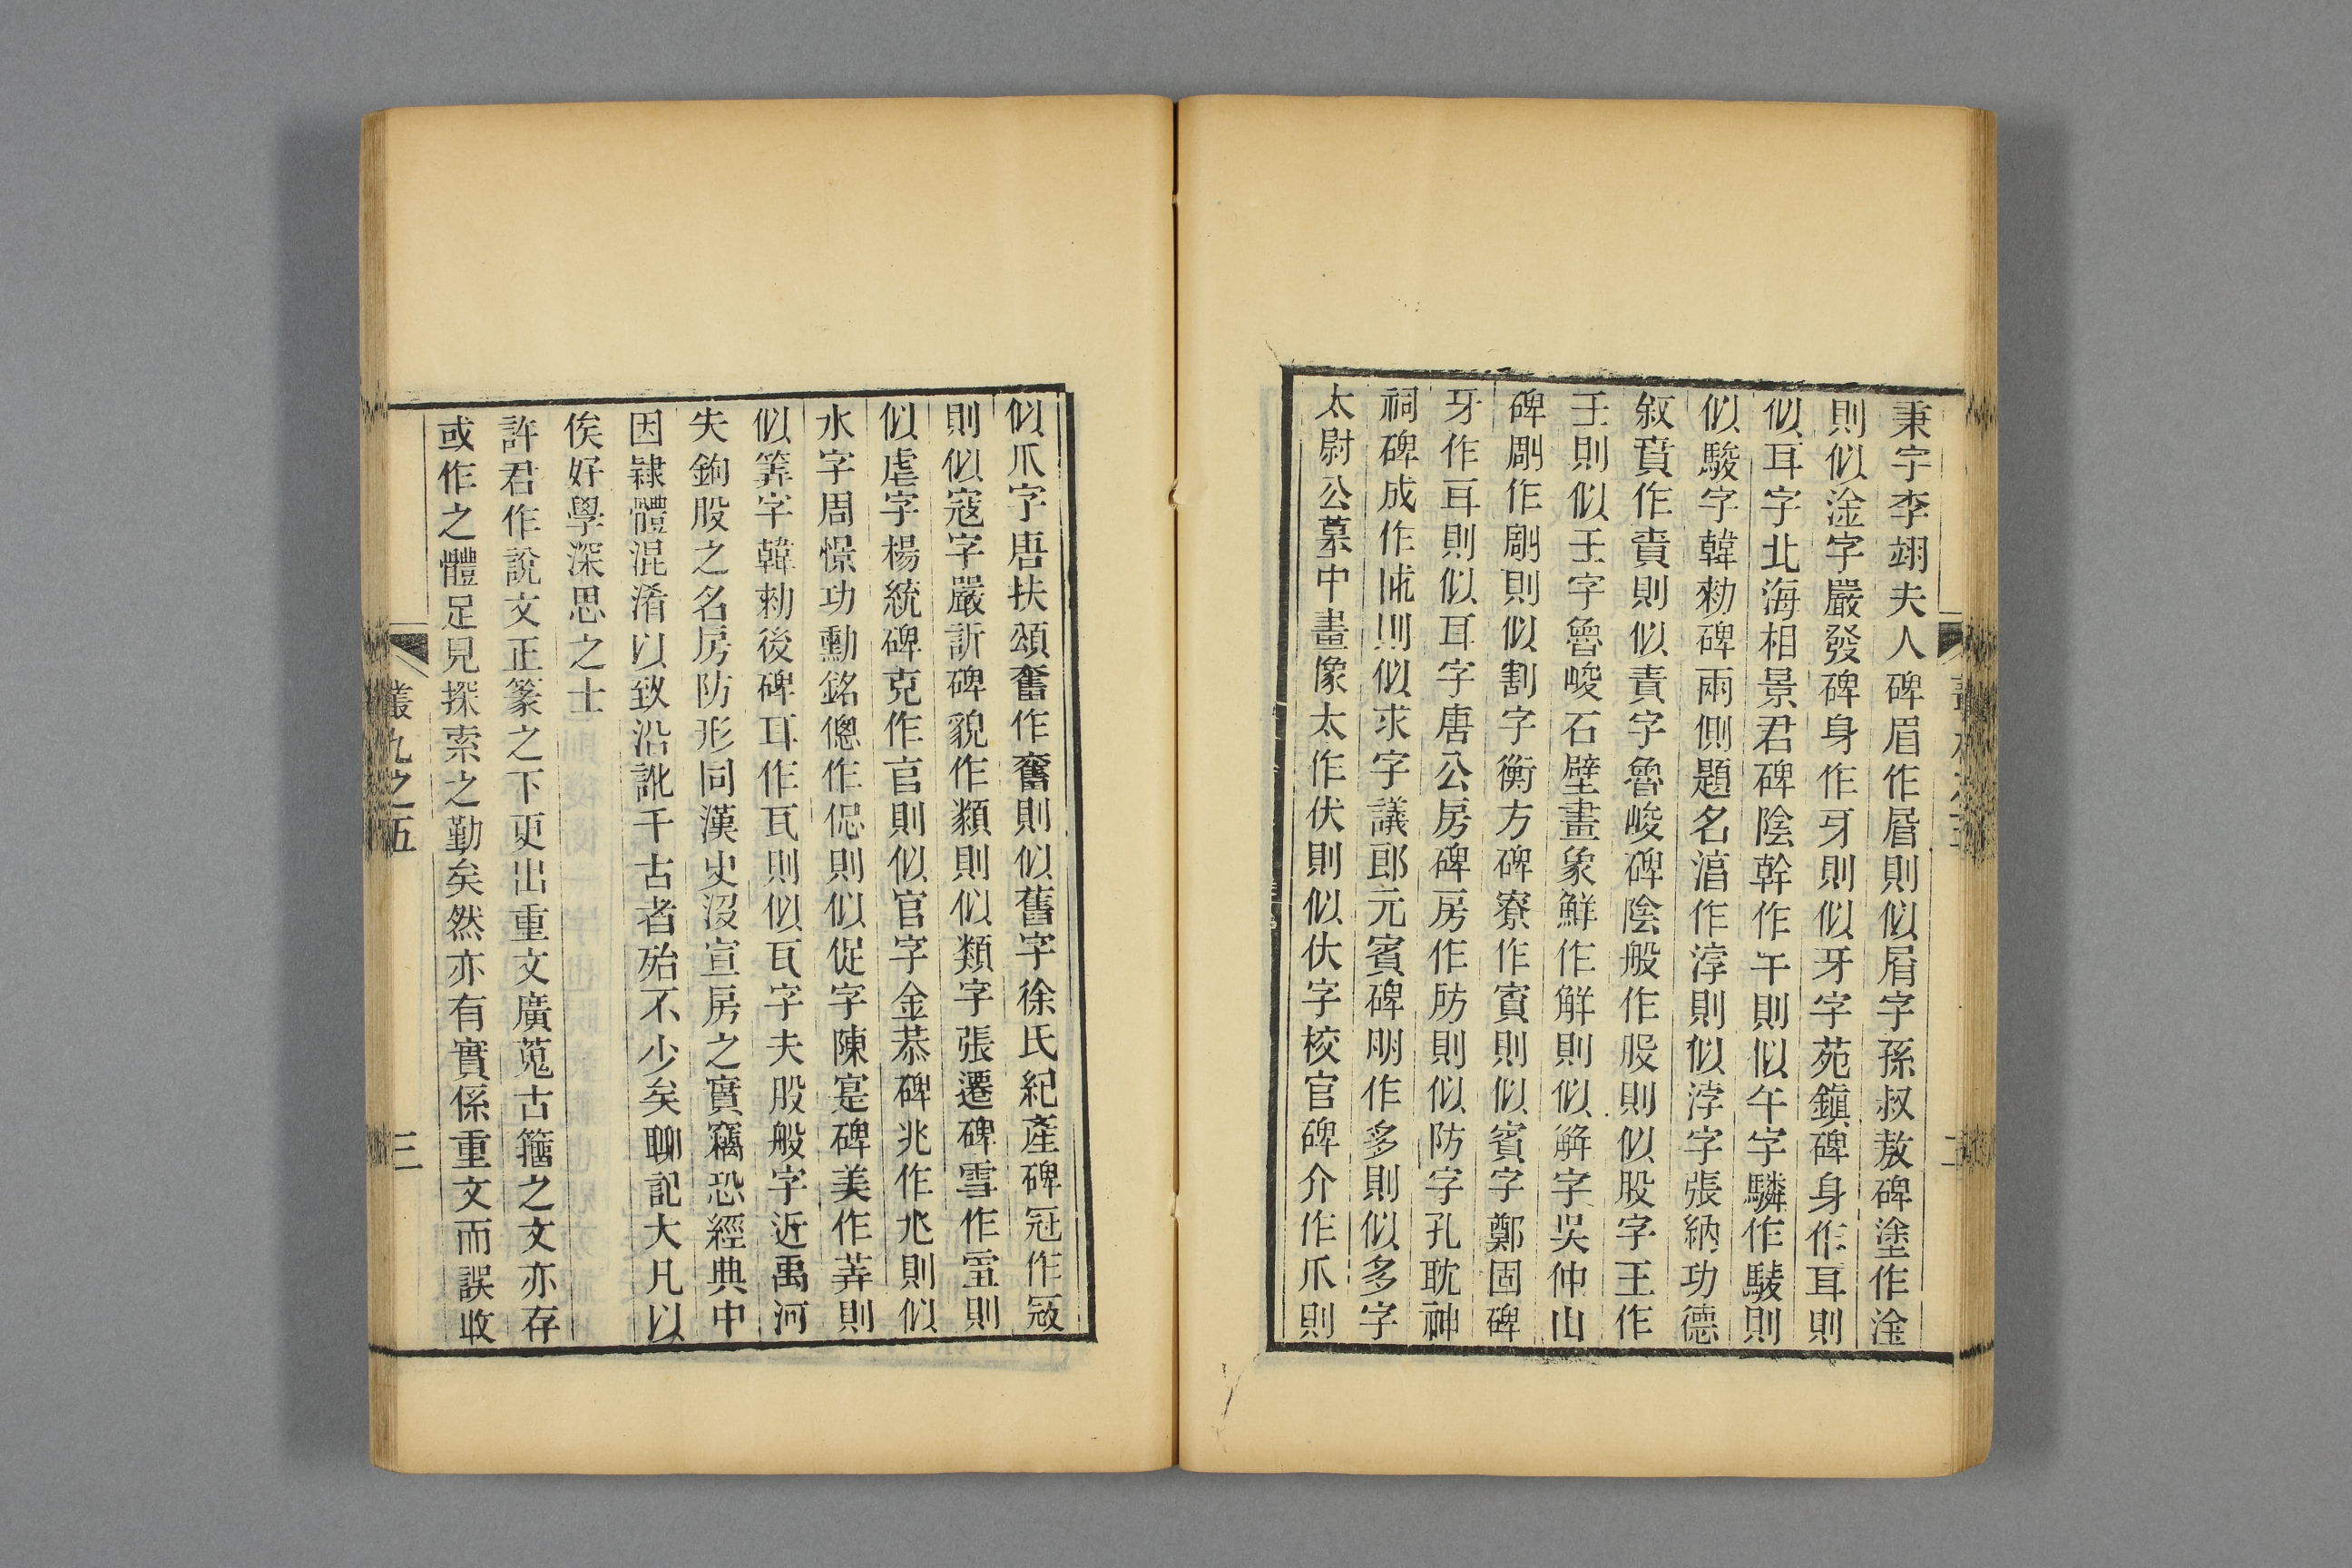 秉字李翊夫人碑眉作𥄫則似屑字孫叔敖碑塗作淦
則似淦字嚴發碑身作牙則似牙字苑鎮碑身作耳則
似耳字北海相景君碑陰幹作午則似午字驎作䮚則
似駿字韓勑碑兩側題名㵧作淳則似浡字張納功德
叙賁作責則似責字魯峻碑陰般作股則似股字王作
王則似王字魯峻石壁畫象鮮作觧則似解字吳仲山
碑剛作剛則似割字衡方碑寮作賓則似賓字鄭固碑
牙作耳則似耳字唐公房碑房作防則似防字孔耽神
祠碑成作求則似求字議郎元賓碑朋作多則似多字
太尉公墓中畫像太作伏則似伏字校官碑介作爪則
似爪字唐扶頌奮作奮則似舊字徐氏紀產碑冠作寇
則似寇字嚴訢碑貌作類則似類字張遷碑雪作雪則
似虐字楊統碑克作官則似官字金恭碑兆作兆則似
水字周憬功勳銘傯作促則似促字陳寔碑美作莽則
似筭字韓勑後碑耳作瓦則似瓦字夫股般字近禹河
失鉤股之名房防形同漢史沒宣房之實竊恐經典中
因隸體混淆以致沿訛千古者殆不少矣聊記大凡以
俟好學深思之士
許君作說文正篆之下更出重文廣蒐古籀之文亦存
或作之體足見探索之勤矣然亦有實係重文而誤收
叢九之五
三